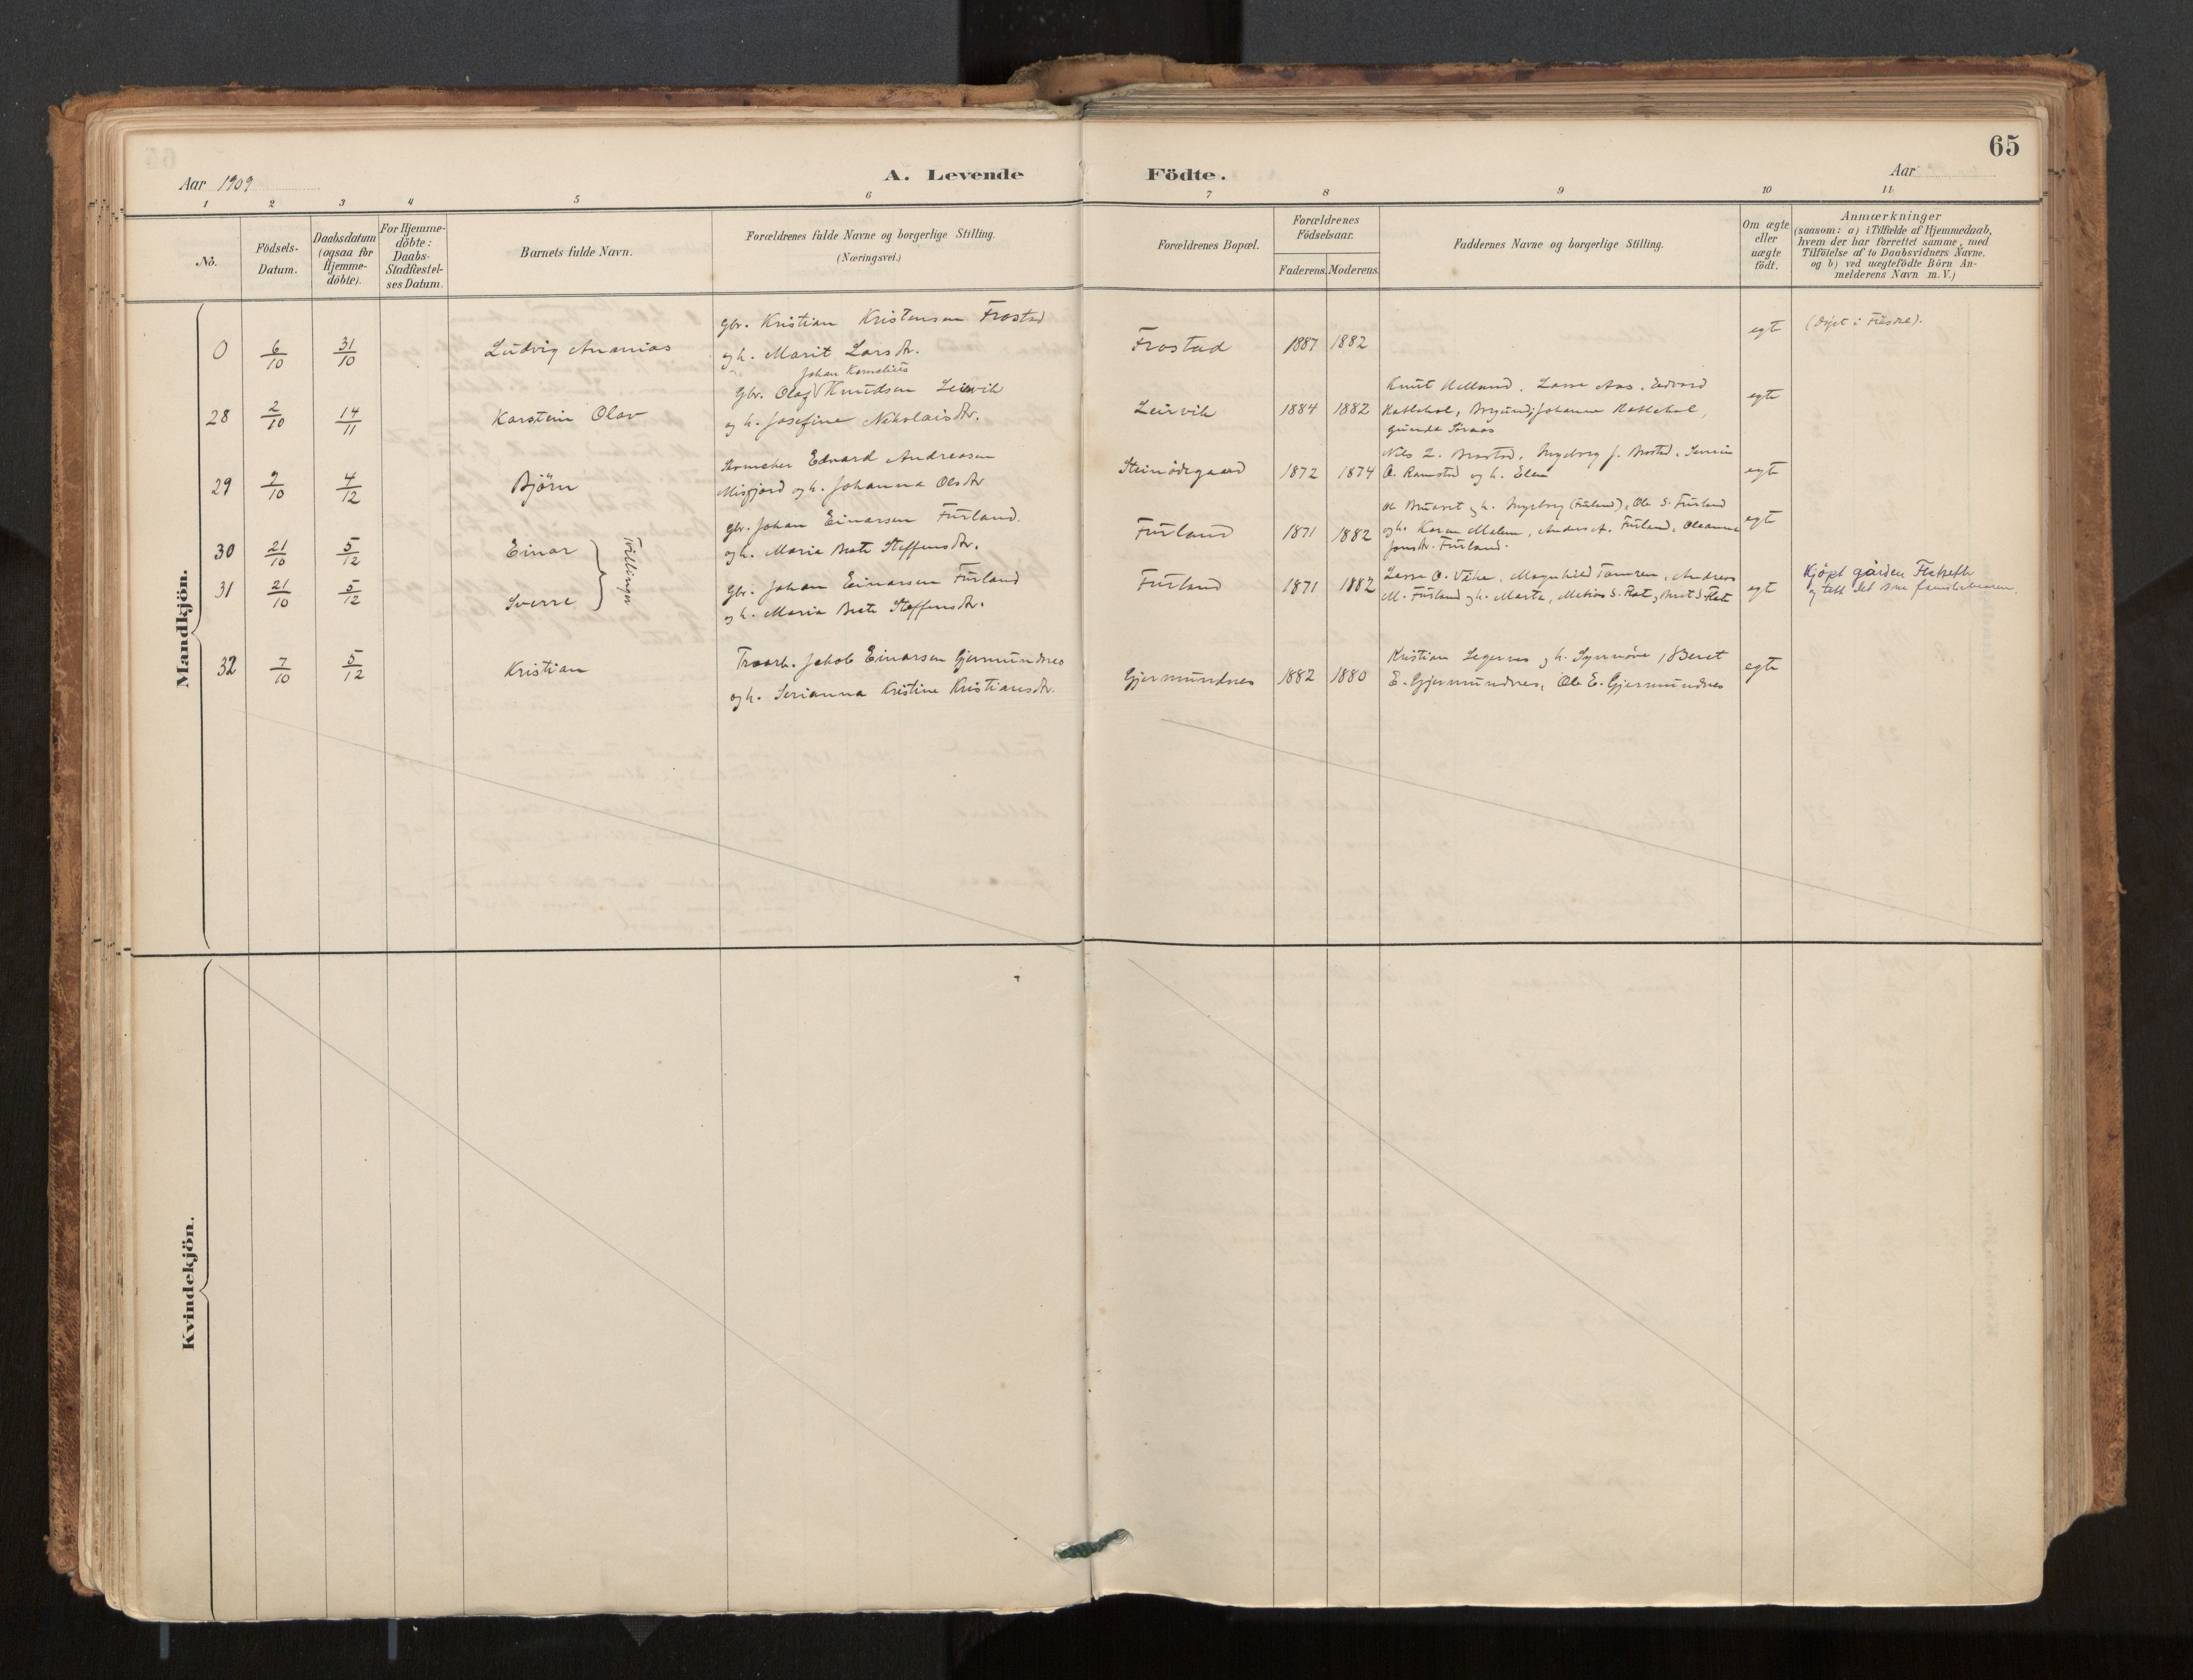 65
Aar 1909
A. Levende Födte.
Aar
1 2 3 4 5 6 7 8 9 10 11
No.
Födsels-Datum.
Daabsdatum (ogsaa for Hjemme-döbte).
For Hjemme-döbte: Daabs-Stadfæstel-ses Datum.
Barnets fulde Navn.
Forældrenes fulde Navne og borgerlige Stilling.
(Næringsvei.)
Forældrenes Bopæl.
Forældrenes Födselsaar.
Faderens. Moderens.
Faddernes Navne og borgerlige Stilling.
Om ægte eller uægte födt.
Anmærkninger
(saasom: a) i Tilfælde af Hjemmedaab,
hvem der har forrettet samme, med
Tilföielse af to Daabsvidners Navne,
og b) ved uægtefödte Börn An-
melderens Navn m. V.)
Mandkjön.
0 6/10 31/10 Ludvig Ananias
Gbr. Kristian Kristensen Frostad
og h. Marit Larsdtr.
Frostad 1887 1882 egte
28 2/10 14/11 Karstein Olav
Johan Kornelius
Gbr. Olaf Knudsen Leirvik
og h. Josefine Nikolaisdtr.
Leirvik 1884 1882
Knut Helland, Lasse Aas, Edvard
Hatlehol, Johanne Hatlehol,
egte
29 9/10 4/12 Björn
Skomaker Edvard Andreasen
Misfjord og h. Johanna Olsdtr
Steinödegaard 1872 1874
Nils L. Brastad, Ingeborg J. Brastad,
O. Ramstad og h. Elen
egte
30 21/10 5/12 Einar
Tvillinger
Gbr. Johan Einarsen Furland.
og h. Maria Beate Steffensdtr.
Furland 1871 1882
og h. Ingeborg (Furland), Ole S. Furland
og h. Karen Malene, Anders A. Furland, Oleanna
Jonsdtr. Furland.
egte
31 21/10 5/12 Sverre
Gbr. Johan Einarsen Furland
og h. Maria Beate Steffensdtr.
Furland 1871 1882
Lasse O. Vike, Magnhild Tomren, Andreas
M. Furland og h. Marta,
egte
Kjöpt gården Flatseth
og tatt det som familienavn.
32 7/10 5/12 Kristian
Jakob Einarsen Gjermundnes
og h. Serianna Kristine Kristiansdtr.
Gjermundnes 1882 1880
Kristian Legernes og h. Synnöve, Beret
E. Gjermundnes, Ole E. Gjermundnes
egte
Kvindekjön.